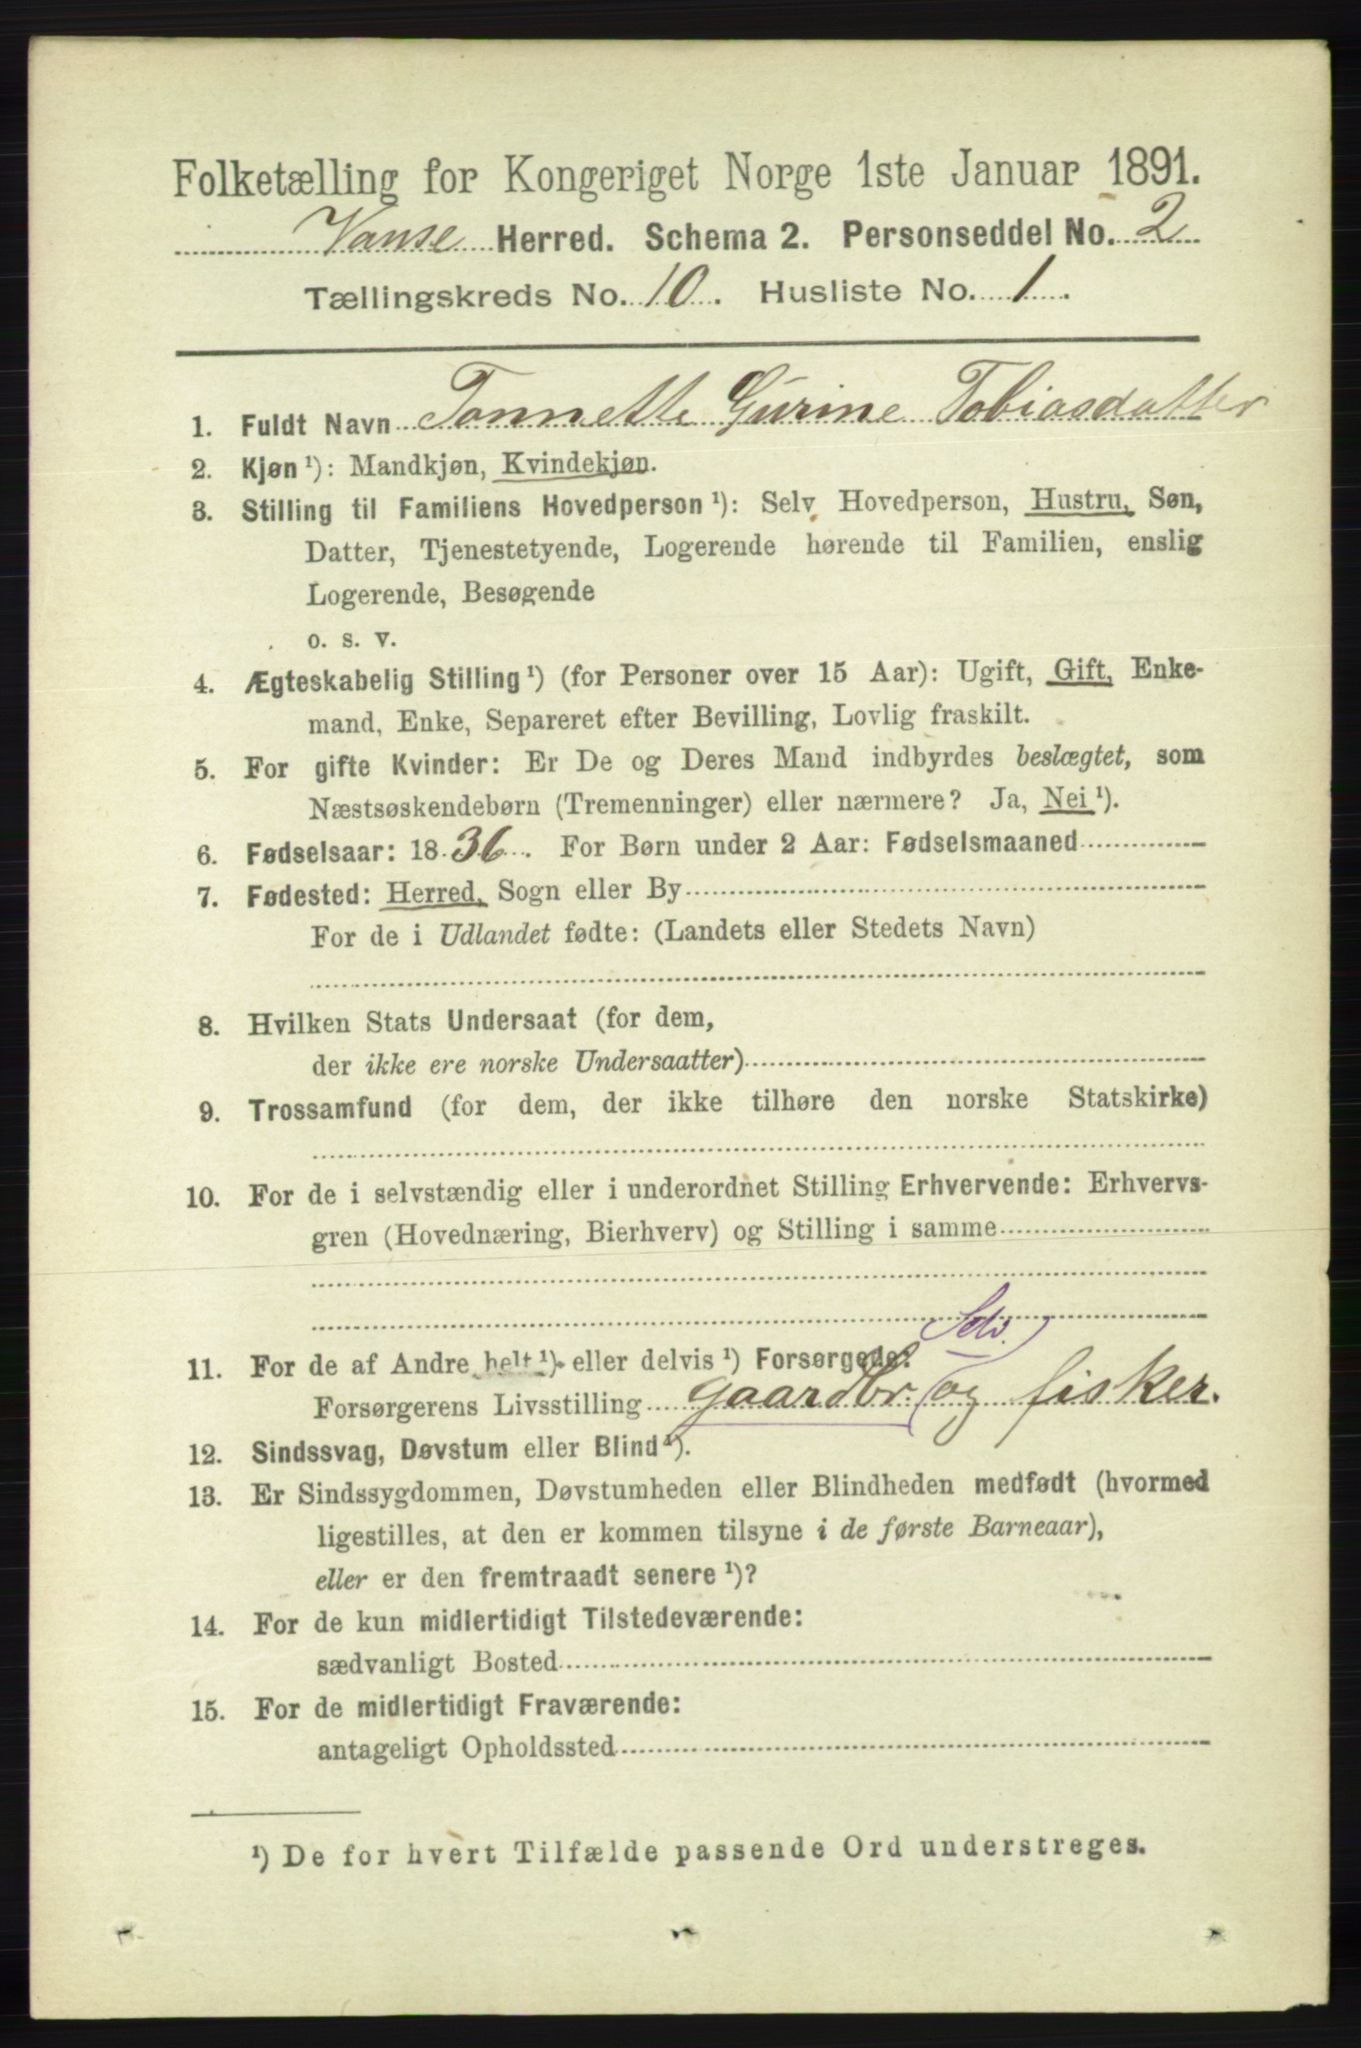 Folketælling for Kongeriget Norge 1ste Januar 1891.
Vanse Herred. Schema 2. Personseddel No. 2
Tællingskreds No. 10. Husliste No. 1.
1. Fuldt Navn Tonnette Gurine Tobiasdatter
2. Kjøn ¹): Mandkjøn, Kvindekjøn.
3. Stilling til Familiens Hovedperson ¹): Selv Hovedperson, Hustru, Søn,
Datter, Tjenestetyende, Logerende hørende til Familien, enslig
Logerende, Besøgende
o. s. v.
4. Ægteskabelig Stilling ¹) (for Personer over 15 Aar): Ugift, Gift, Enke-
mand, Enke, Separeret efter Bevilling, Lovlig fraskilt.
5. For gifte Kvinder: Er De og Deres Mand indbyrdes beslægtet, som
Næstsøskendebørn (Tremenninger) eller nærmere? Ja, Nei ¹).
6. Fødselsaar: 1836. For Børn under 2 Aar: Fødselsmaaned
7. Fødested: Herred, Sogn eller By
For de i Udlandet fødte: (Landets eller Stedets Navn)
8. Hvilken Stats Undersaat (for dem,
der ikke ere norske Undersaatter)
9. Trossamfund (for dem, der ikke tilhøre den norske Statskirke)
10. For de i selvstændig eller i underordnet Stilling Erhvervende: Erhvervs-
gren (Hovednæring, Bierhverv) og Stilling i samme
Selv.
11. For de af Andre helt ¹) eller delvis ¹) Forsørgede:
Forsørgerens Livsstilling gaardbr. (og fisker.
12. Sindssvag, Døvstum eller Blind ¹).
13. Er Sindssygdommen, Døvstumheden eller Blindheden medfødt (hvormed
ligestilles, at den er kommen tilsyne i de første Barneaar),
eller er den fremtraadt senere ¹)?
14. For de kun midlertidigt Tilstedeværende:
sædvanligt Bosted
15. For de midlertidigt Fraværende:
antageligt Opholdssted
¹) De for hvert Tilfælde passende Ord understreges.